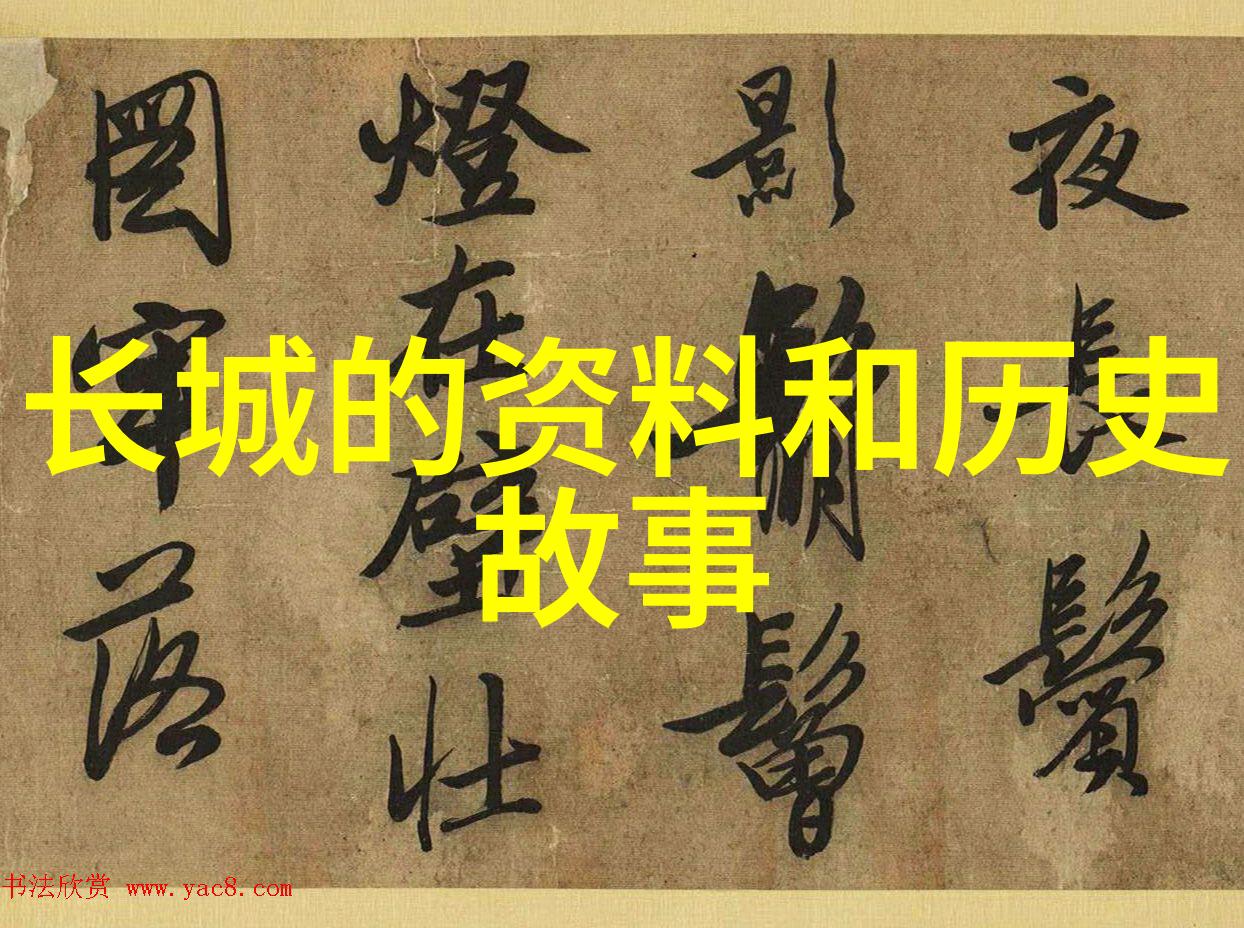 夜長鬢
影鬅鬙
燈在壁壯
圖牢落
长城的资料和历史
故事
书法欣赏 www.yac8.com